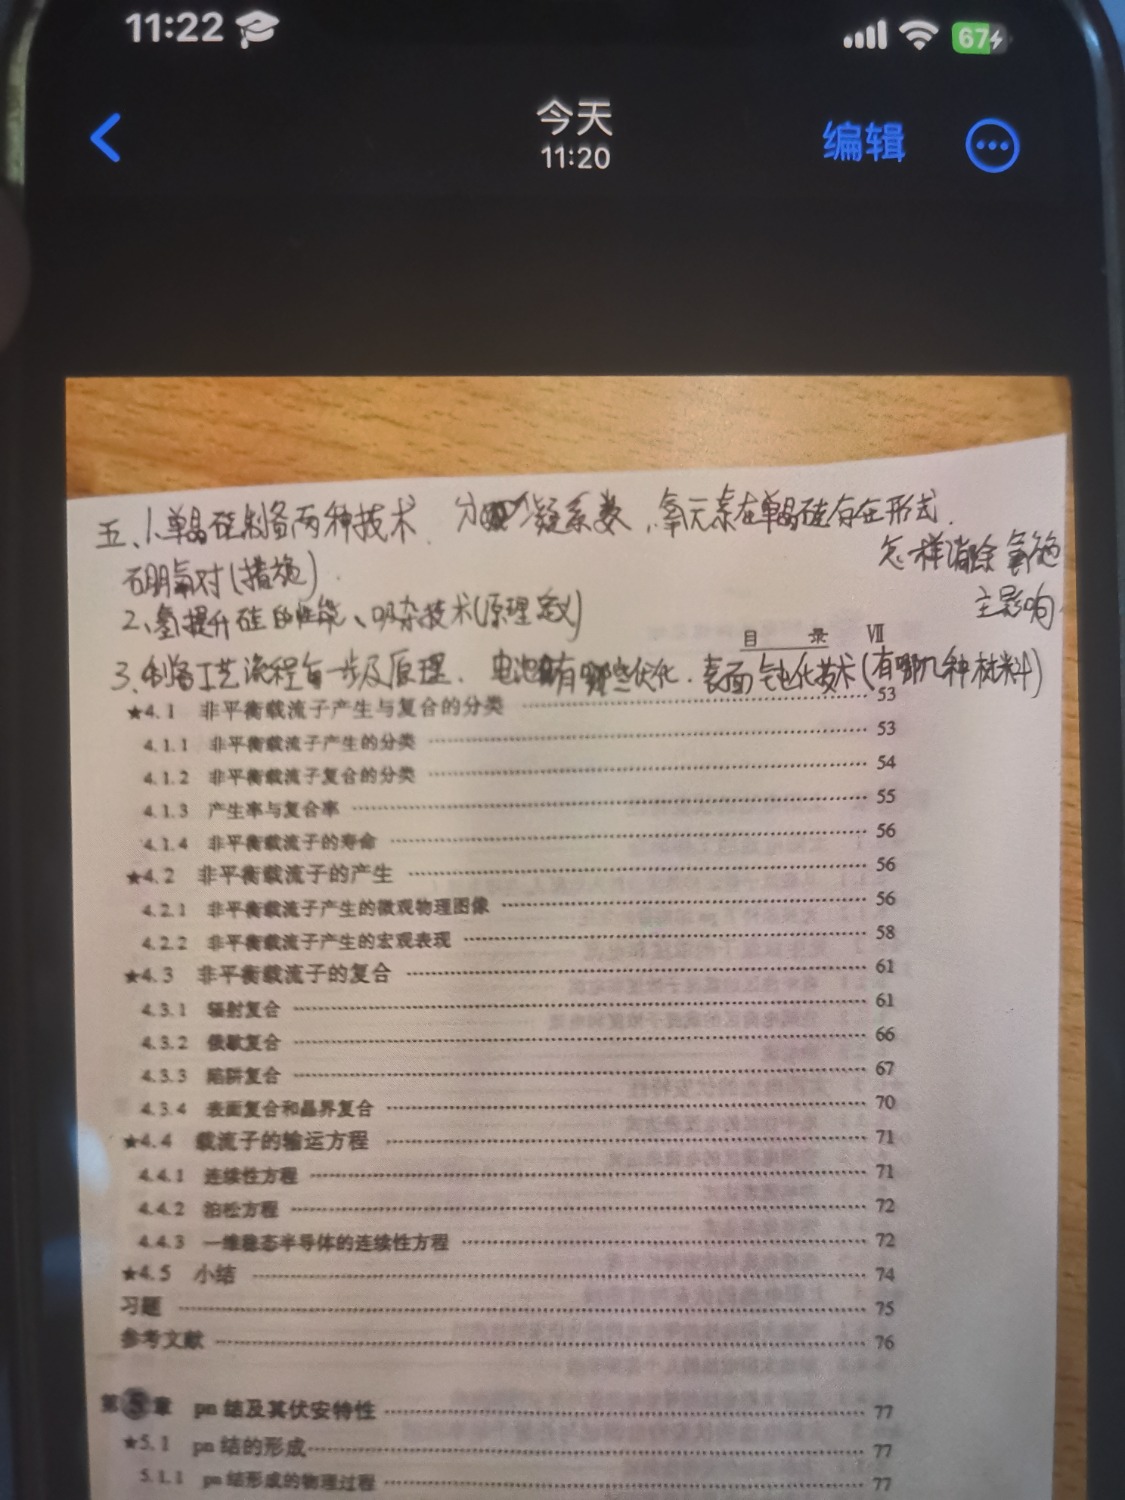 11:22
67
今天
11:20
编辑
五、1.单晶硅制备两种技术. 分凝系数、氧元素在单晶硅存在形式.
怎样消除氧施
主影响
硼氧对(措施).
2、氢提升硅的性能、吸杂技术(原理 定义)
目 录 Ⅶ
3.制备工艺流程每一步及原理. 电池有哪些优化. 表面钝化技术(有哪几种材料)
53
★4.1 非平衡载流子产生与复合的分类
4.1.1 非平衡载流子产生的分类 53
4.1.2 非平衡载流子复合的分类 54
4.1.3 产生率与复合率 55
4.1.4 非平衡载流子的寿命 56
★4.2 非平衡载流子的产生 56
4.2.1 非平衡载流子产生的微观物理图像 56
4.2.2 非平衡载流子产生的宏观表现 58
★4.3 非平衡载流子的复合 61
4.3.1 辐射复合 61
4.3.2 俄歇复合 66
4.3.3 陷阱复合 67
4.3.4 表面复合和晶界复合 70
★4.4 载流子的输运方程 71
4.4.1 连续性方程 71
4.4.2 泊松方程 72
4.4.3 一维稳态半导体的连续性方程 72
★4.5 小结 74
习题 75
参考文献 76
第5章 pn 结及其伏安特性 77
★5.1 pn 结的形成 77
5.1.1 pn 结形成的物理过程 77